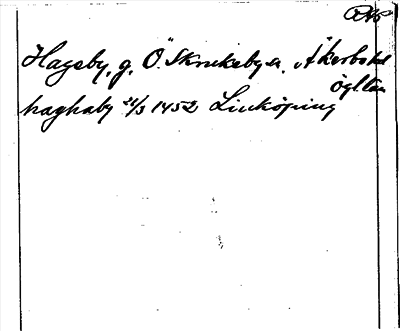 Hageby, g, Ö. Skrukeby sn. Åkerbo hd
Ögl. län
haghaby 21/3 1452 Linköping